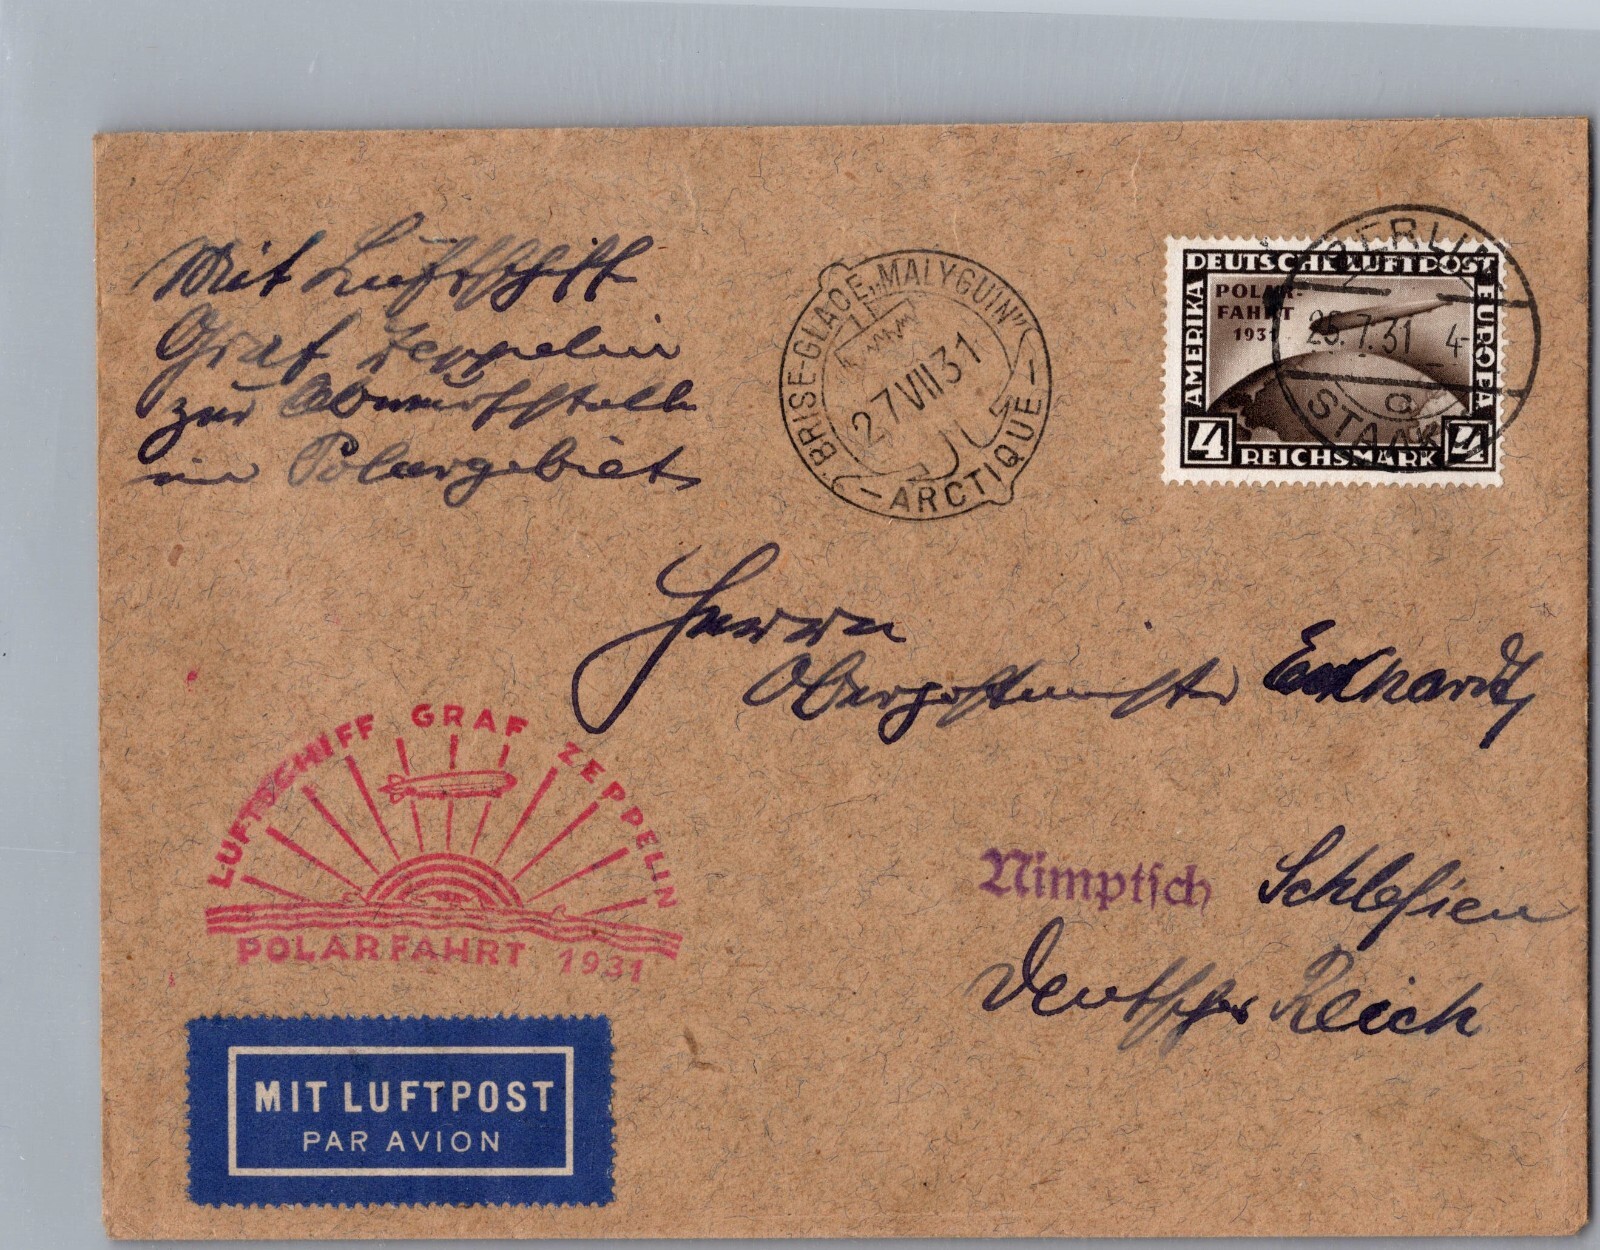 Mit Luftschiff
Graf Zeppelin
zur Abwurfstelle
im Polargebiet
BRISE-GLACE „MALYGUIN"
27 VII 31
— ARCTIQUE —
BERLIN
25.7.31 4-
STAAKEN
DEUTSCHE LUFTPOST
AMERIKA
EUROPA
POLAR-
FAHRT
1931
4 REICHSMARK 4
Herrn
Oberpostmeister Eckhardt
LUFTSCHIFF GRAF ZEPPELIN
POLARFAHRT 1931
Nimptsch Schlesien
Deutsches Reich
MIT LUFTPOST
PAR AVION